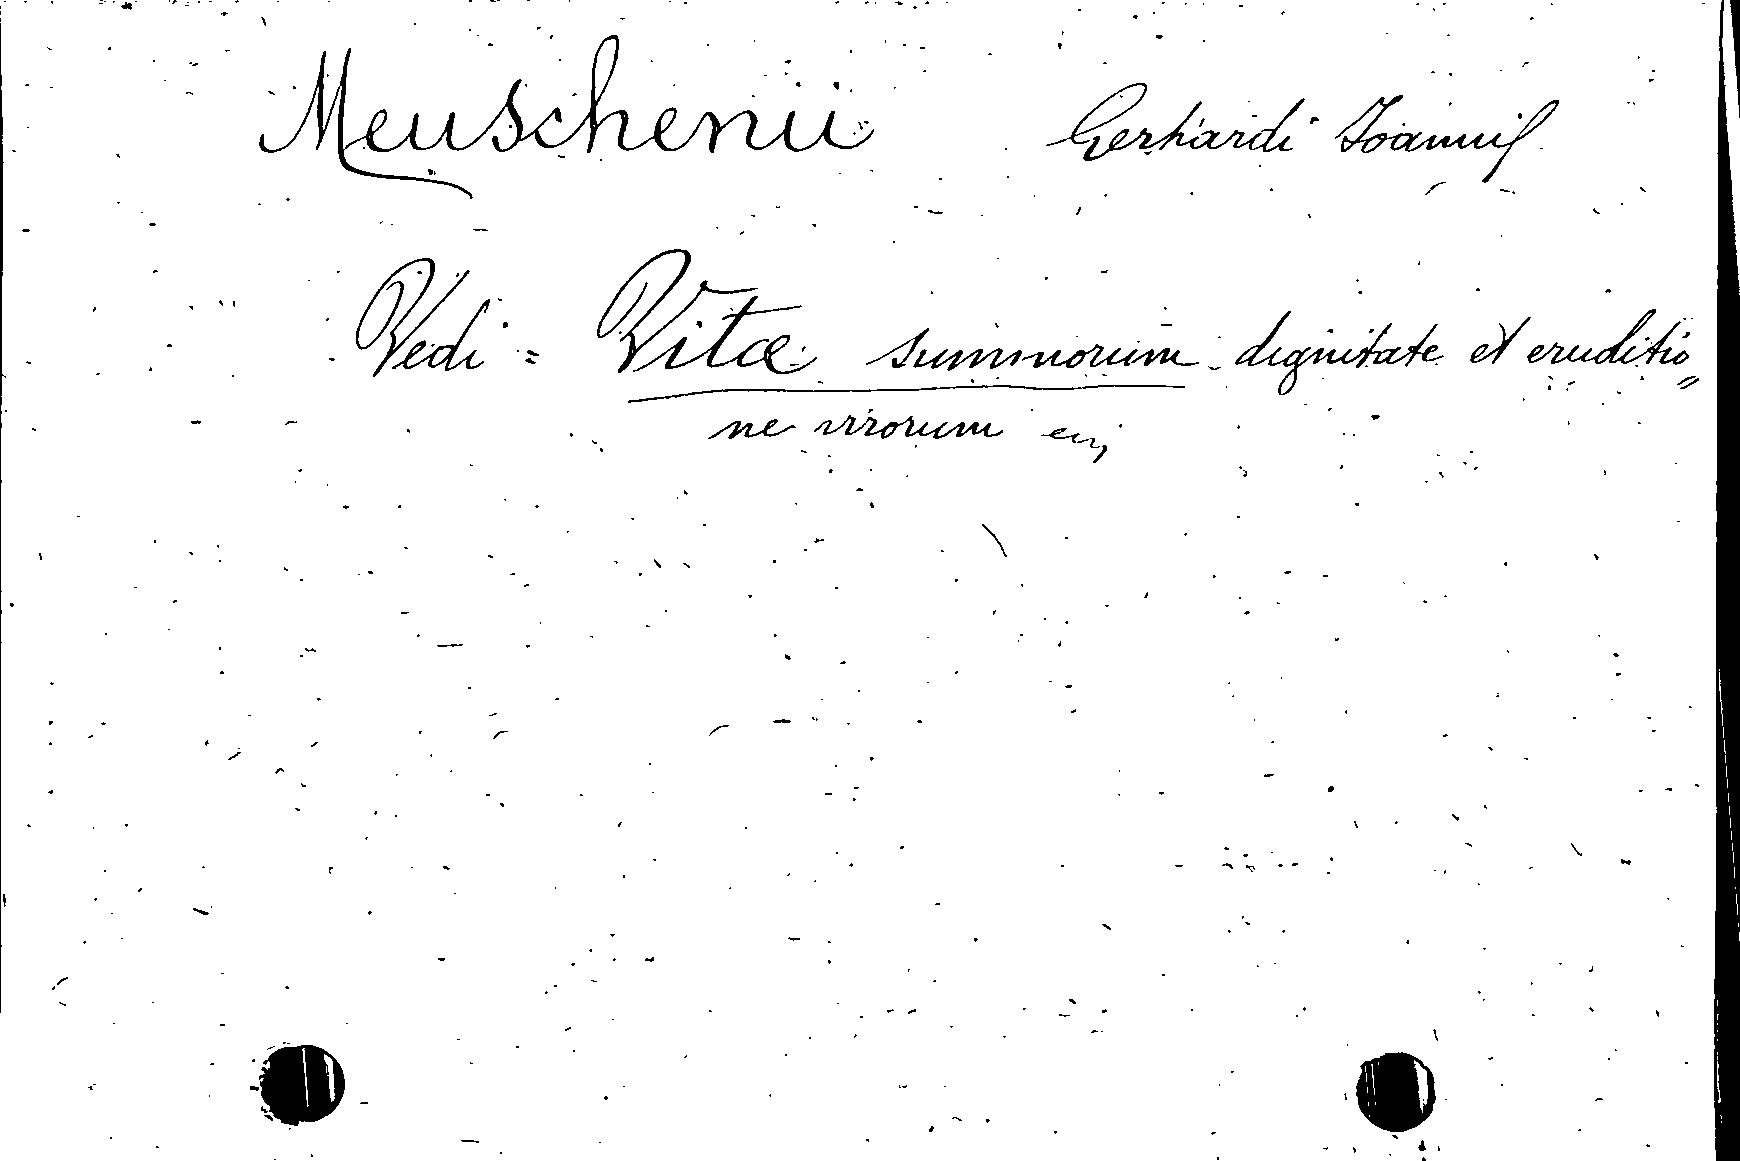 Meuschenii Gerhardi Joannis
Vedi = Vitæ summorum dignitate et eruditio„
ne virorum